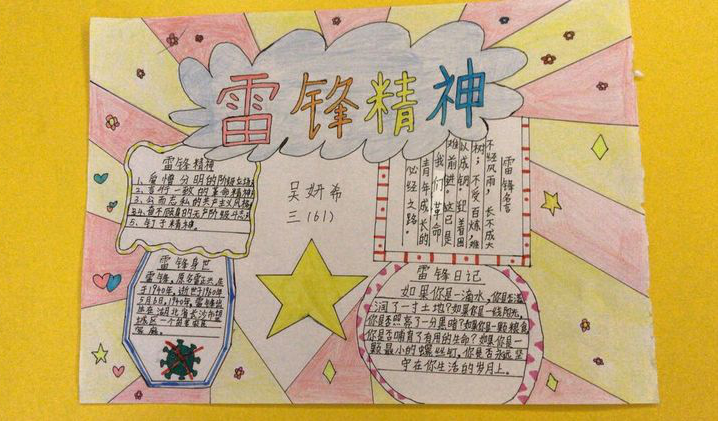 雷锋精神
雷锋精神
1、爱憎分明的阶级立场
2、言行一致的革命精神
3、公而忘私的共产主义风格
4、奋不顾身的无产阶级斗志
5、钉子精神。
吴妍希
三(61)
雷锋名言
不经风雨，长不成大
树；不受百炼，难
以成钢。迎着困
难前进。这也是
我们革命
青年成长的
必经之路。
雷锋身世
雷锋，原名雷正兴，生
于1940年，逝世于1960年
5月6日，1940年，雷锋出
生在湖北省长沙市望
城区一个贫苦农民
家庭。
雷锋日记
如果你是一滴水，你是否滋
润了一寸土地？如果你是一线阳光，
你是否照亮了一分黑暗？如果你是一颗粮食
你是否哺育了有用的生命？如果你是一
颗最小的螺丝钉，你是否永远坚
守在你生活的岁月上。